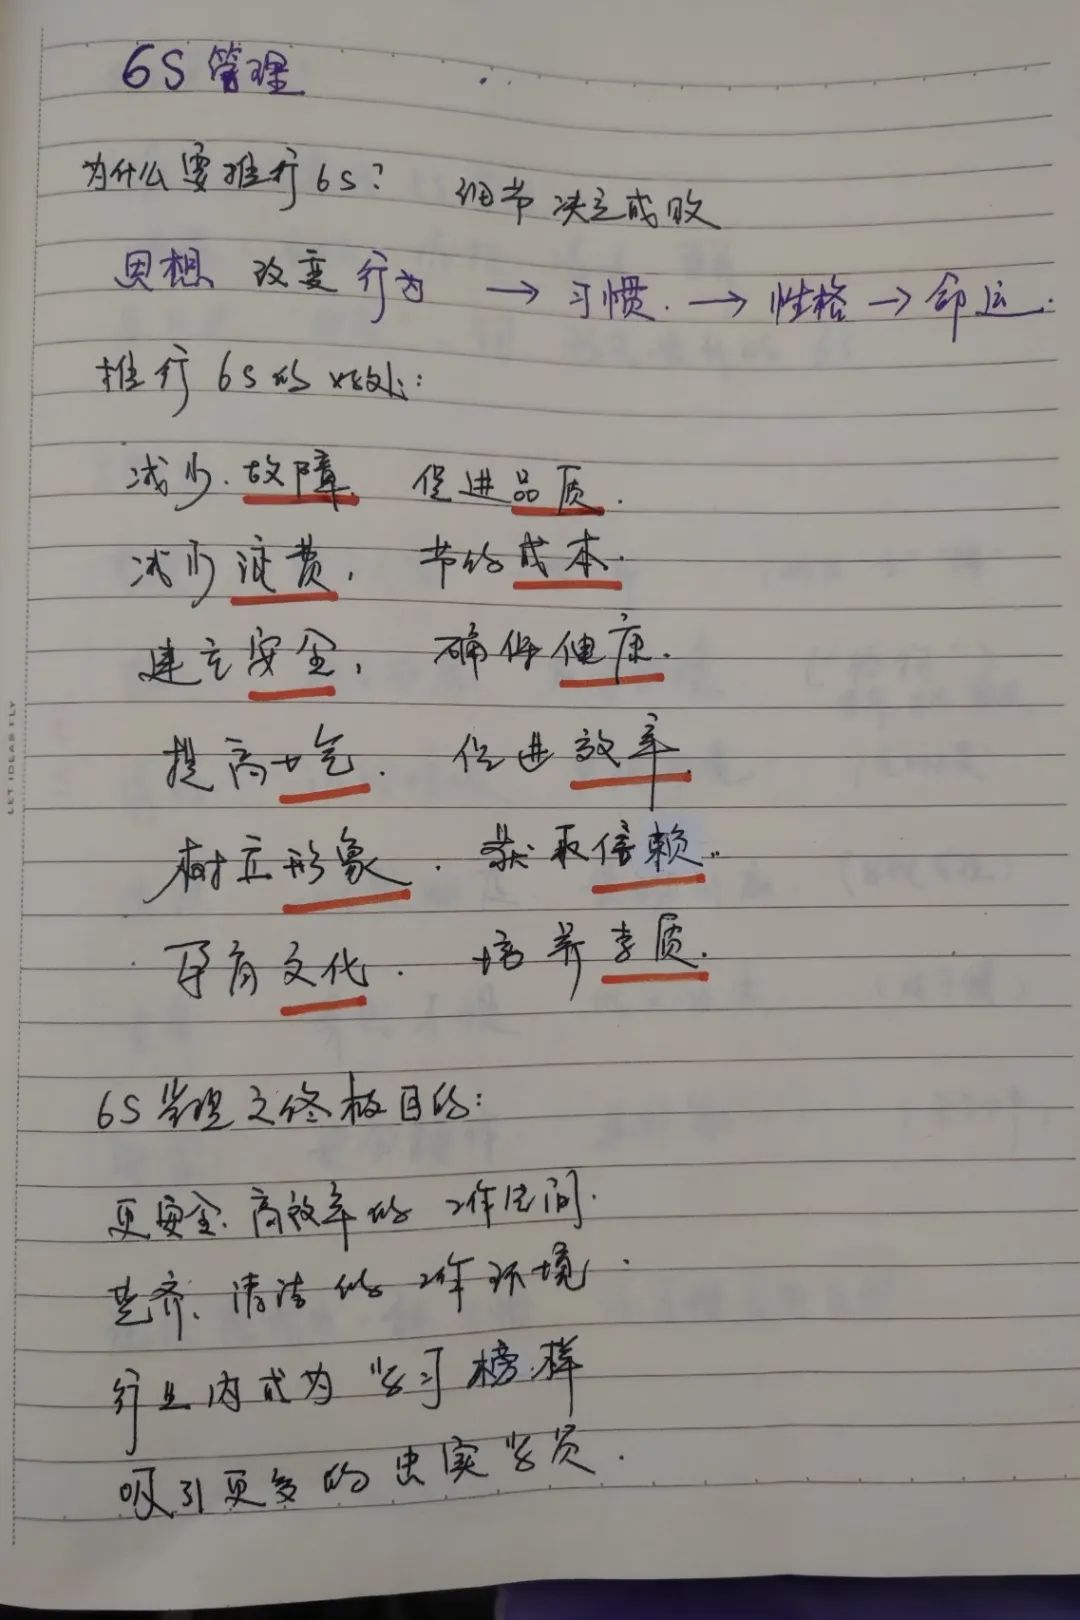 6S管理
为什么要推行6S? 细节决定成败
思想 改变行为 → 习惯. → 性格 → 命运.
推行6S的好处:
减少.故障. 促进品质.
减少浪费, 节约成本.
建立安全, 确保健康.
提高士气. 促进效率.
树立形象. 获取信赖..
孕育文化. 培养素质.
6S管理之终极目的:
更安全.高效率的 工作空间.
整齐.清洁的工作环境.
行业内成为学习榜样
吸引更多的忠实学员.
LET IDEAS FLY